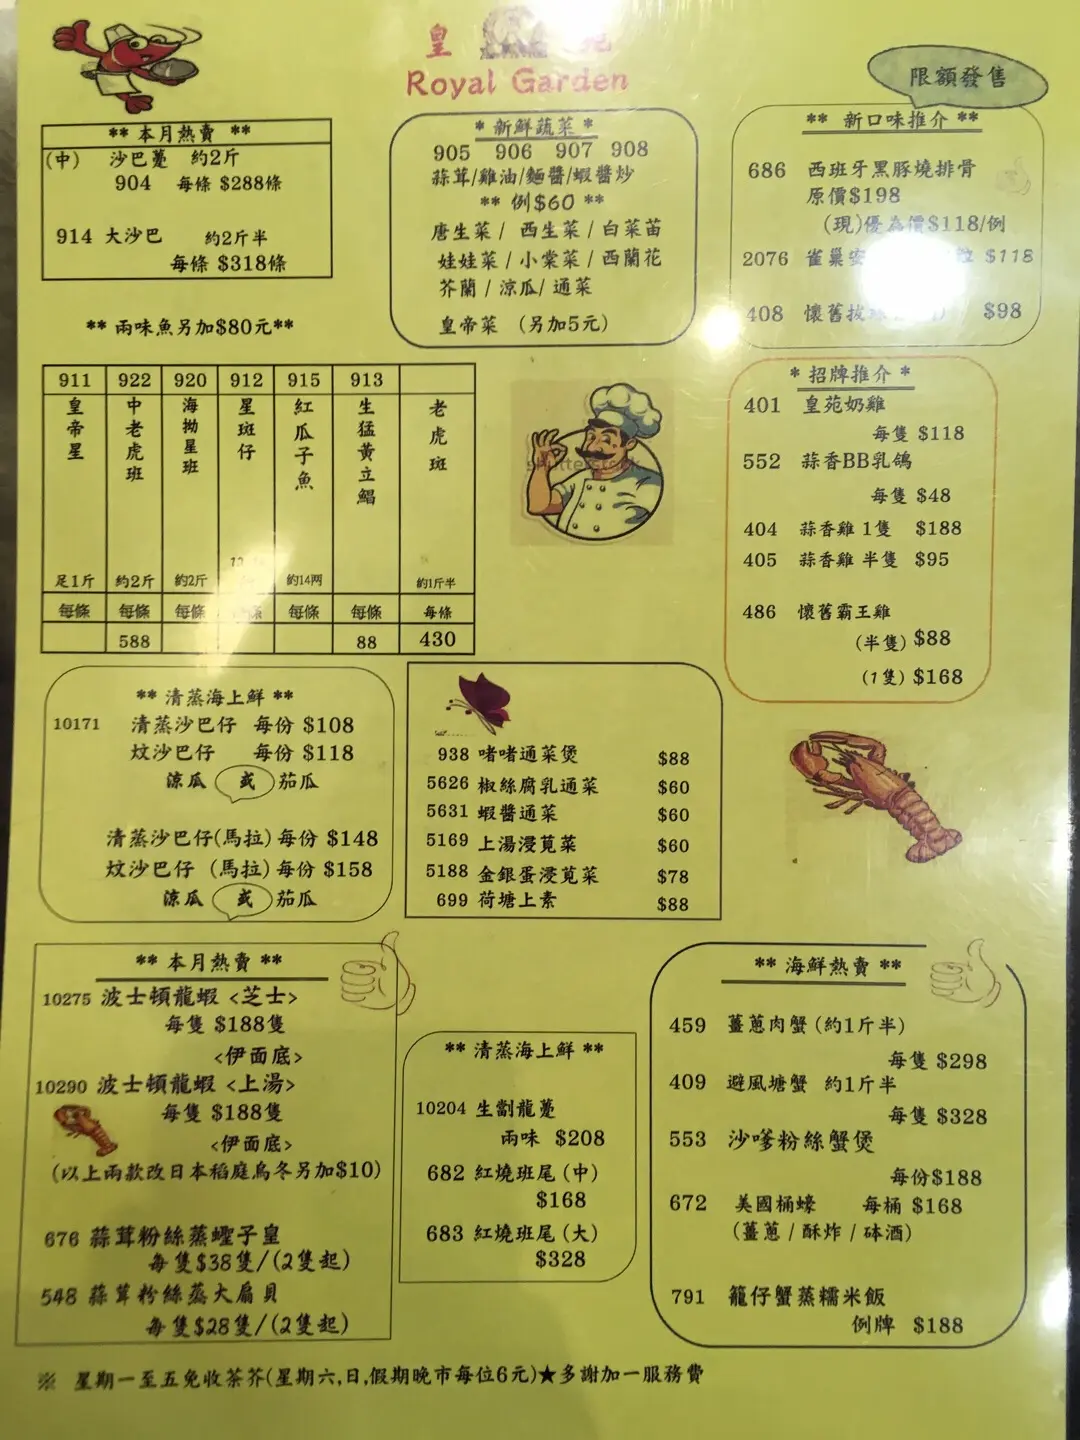 皇 苑
Royal Garden
限額發售
** 本月熱賣 **
(中) 沙巴躉 約2斤
904 每條 $288條
914 大沙巴 約2斤半
每條 $318條
** 兩味魚另加$80元**
* 新鮮蔬菜 *
905 906 907 908
蒜茸/雞油/麵醬/蝦醬炒
** 例$60 **
唐生菜 / 西生菜 / 白菜苗
娃娃菜 / 小棠菜 / 西蘭花
芥蘭 / 涼瓜/ 通菜
皇帝菜 (另加5元)
** 新口味推介 **
686 西班牙黑豚燒排骨
原價$198
(現)優為價$118/例
2076 雀巢安 $118
408 懷舊拔 $98
911 922 920 912 915 913
皇帝星 中老虎班 海拗星班 星斑仔 紅瓜子魚 生猛黃立鯧 老虎斑
足1斤 約2斤 約2斤 約14両 約1斤半
每條 每條 每條 條 每條 每條 每條
588 88 430
* 招牌推介 *
401 皇苑奶雞
每隻 $118
552 蒜香BB乳鴿
每隻 $48
404 蒜香雞 1隻 $188
405 蒜香雞 半隻 $95
486 懷舊霸王雞
(半隻) $88
(1隻) $168
** 清蒸海上鮮 **
10171 清蒸沙巴仔 每份 $108
炆沙巴仔 每份 $118
涼瓜 或 茄瓜
清蒸沙巴仔(馬拉) 每份 $148
炆沙巴仔 (馬拉) 每份 $158
涼瓜 或 茄瓜
938 啫啫通菜煲 $88
5626 椒絲腐乳通菜 $60
5631 蝦醬通菜 $60
5169 上湯浸莧菜 $60
5188 金銀蛋浸莧菜 $78
699 荷塘上素 $88
** 本月熱賣 **
10275 波士頓龍蝦 <芝士>
每隻 $188隻
<伊面底>
10290 波士頓龍蝦 <上湯>
每隻 $188隻
<伊面底>
(以上兩款改日本稻庭烏冬另加$10)
676 蒜茸粉絲蒸蟶子皇
每隻$38隻/(2隻起)
548 蒜茸粉絲蒸大扇貝
每隻$28隻/(2隻起)
** 清蒸海上鮮 **
10204 生劏龍躉
兩味 $208
682 紅燒班尾 (中)
$168
683 紅燒班尾 (大)
$328
** 海鮮熱賣 **
459 薑蔥肉蟹 (約1斤半)
每隻 $298
409 避風塘蟹 約1斤半
每隻 $328
553 沙嗲粉絲蟹煲
每份$188
672 美國桶蠔 每桶 $168
(薑蔥 / 酥炸 / 砵酒)
791 籠仔蟹蒸糯米飯
例牌 $188
※ 星期一至五免收茶芥(星期六,日,假期晚市每位6元)★多謝加一服務費